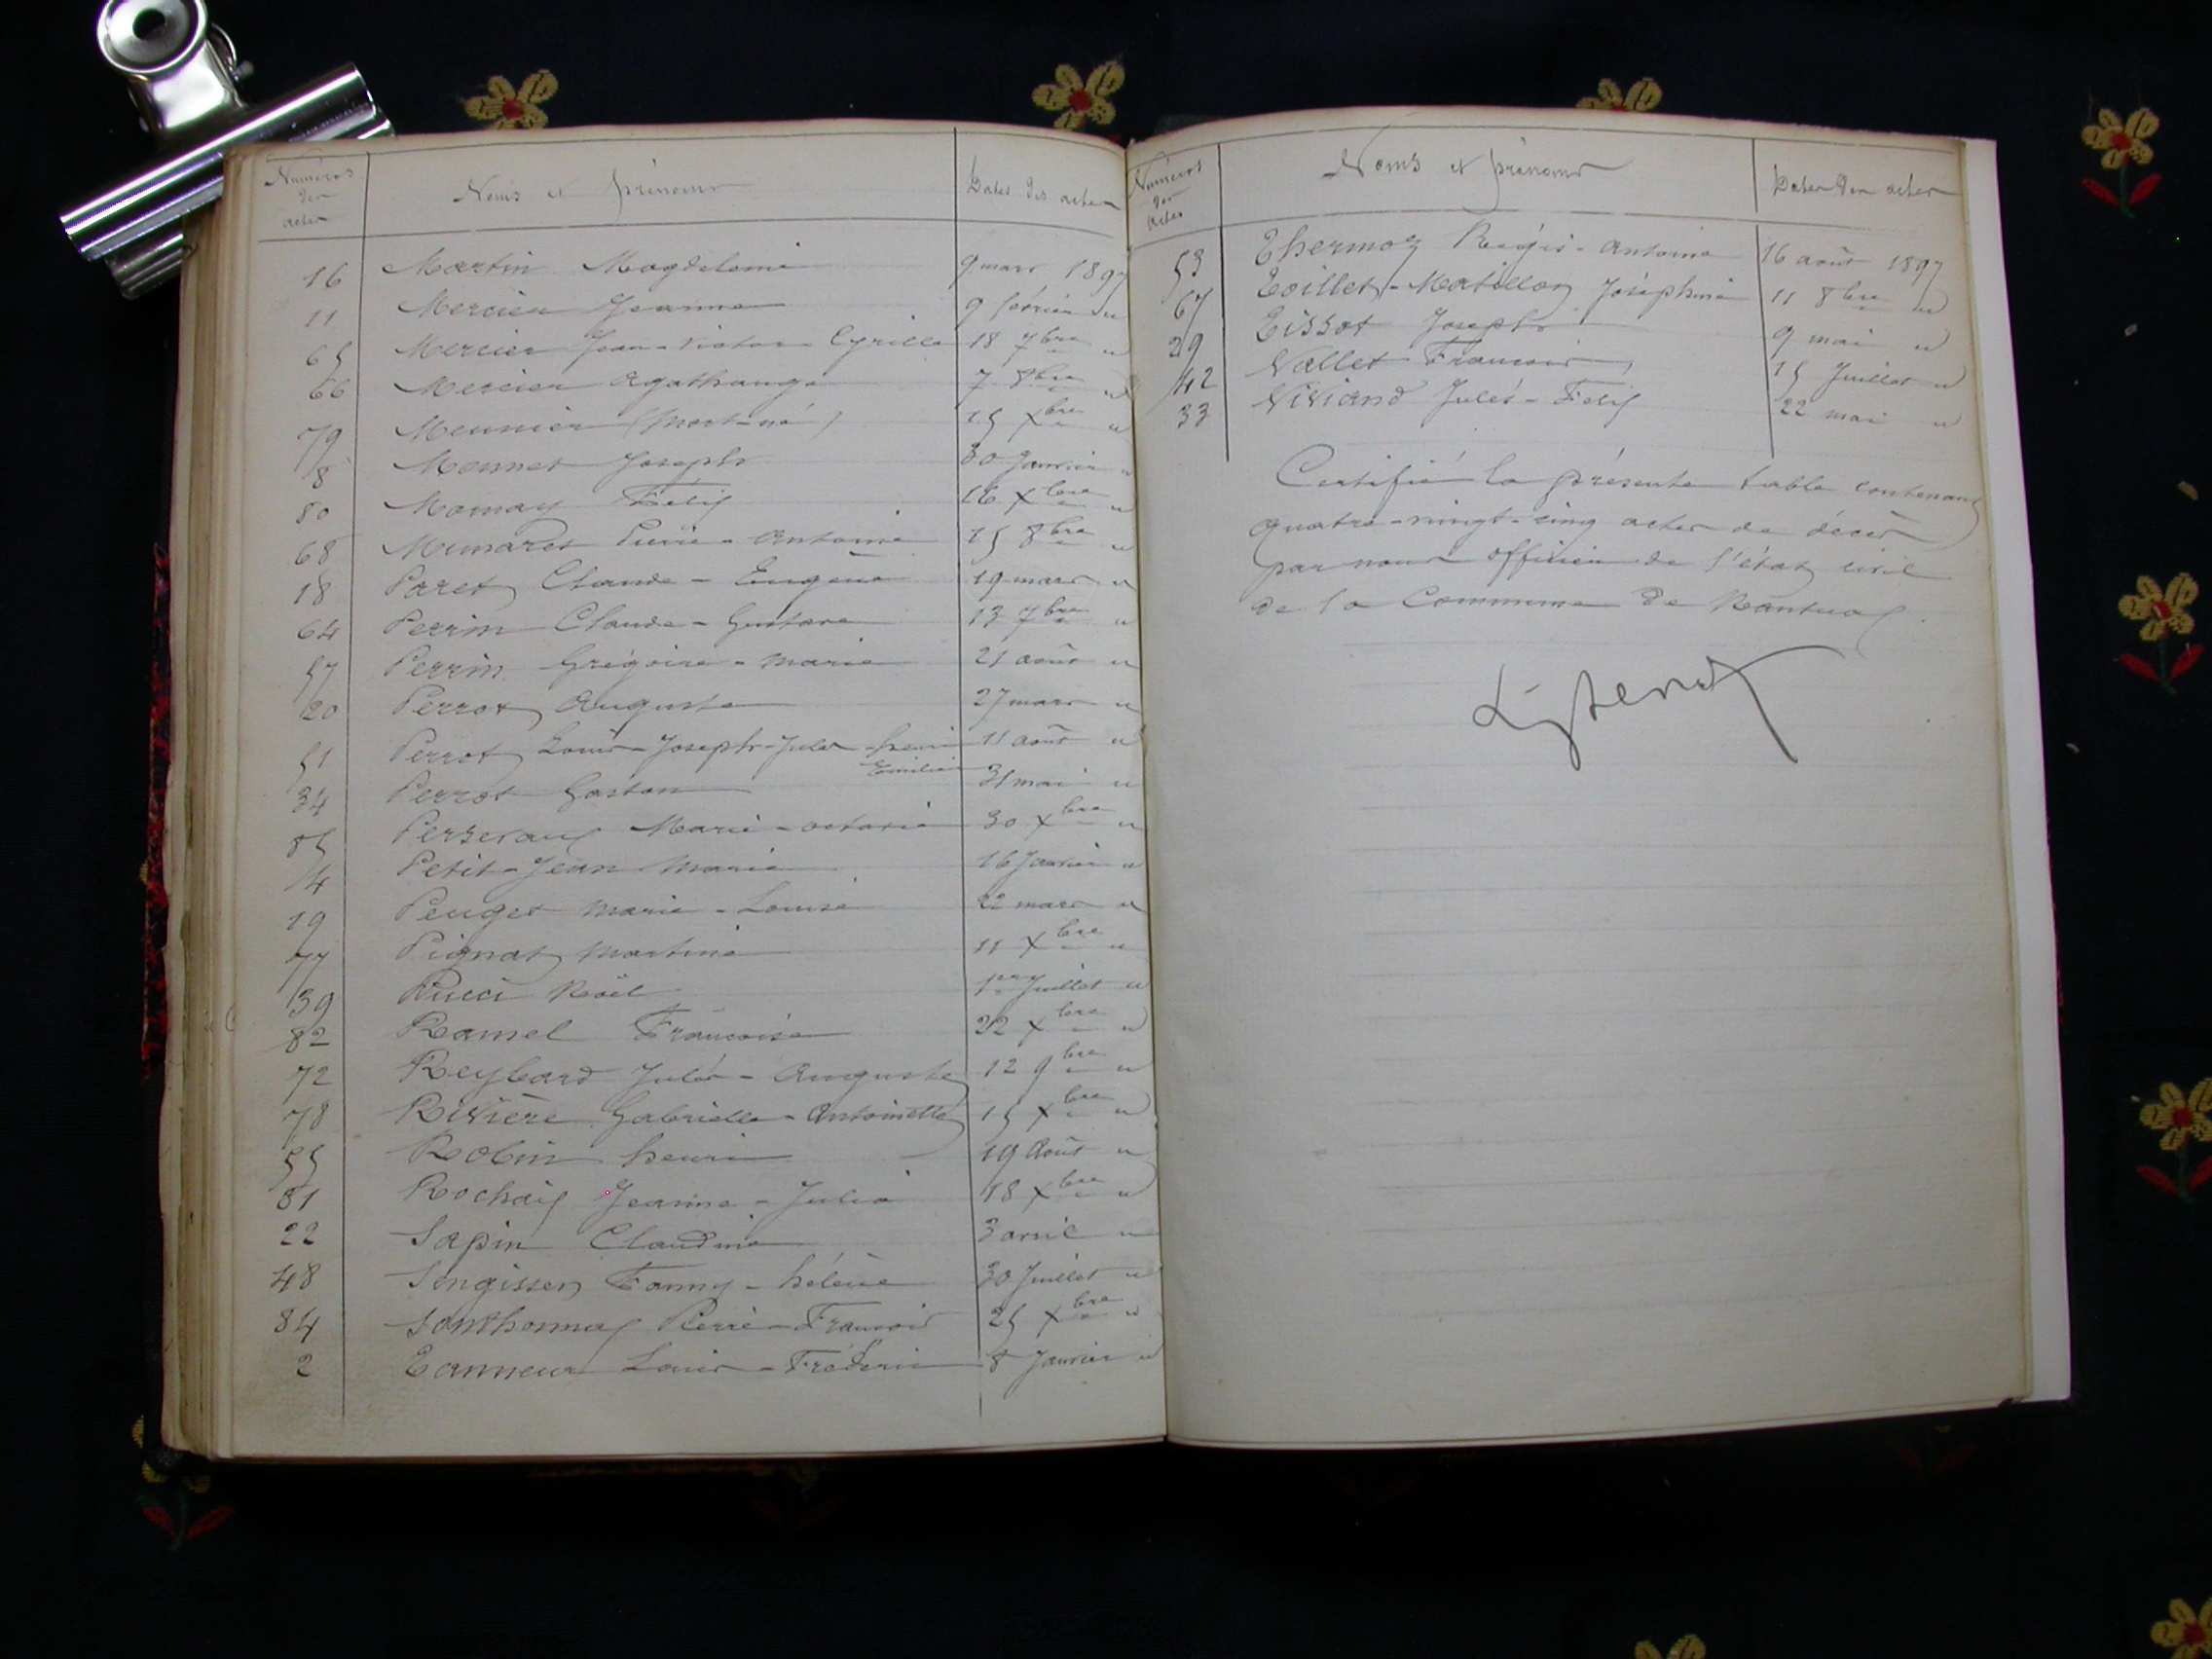 Numéros des actes Noms et prénoms Dates des actes
16 Martin Magdeleine 9 mars 1897
11 Mercier Jeanne 9 février "
65 Mercier Jean-Victor-Cyrille 18 7bre "
66 Mercier Agathange 7 8bre "
79 Meunier (mort-né) 15 Xbre "
8 Monnet Joseph 30 Janvier "
80 Felix 16 Xbre "
68 Munaret Pierre-Antoine 15 8bre "
18 Paret Claude-Eugène 19 mars "
64 Perrin Claude-Gustave 13 7bre "
57 Perrin Grégoire-Marie 21 août "
20 Perrot Auguste 27 mars "
51 Perrot Louis-Joseph-Jules-henri 11 août "
Emilien
34 Perrot Gaston 31 mai "
85 Marie-octavie 30 Xbre "
4 Petit-Jean Marie 16 Janvier "
19 Peuget Marie-Louise 22 mars "
77 Pignat Martine 11 Xbre "
39 Pucci Noël 1er Juillet "
82 Ramel Francoise 22 Xbre "
72 Reybard Jules-Auguste 12 9bre "
78 Rivière Gabrielle-Antoinette 15 Xbre "
55 Robin henri 19 Août "
81 Rochaix Jeanne-Julia 18 Xbre "
22 Sapin Claudine 3 avril "
48 Singissen Fanny-hélène 30 Juillet "
84 Sonthonnax Pierre-Francois 25 Xbre "
2 Tanneur Louis-Fréderic 8 Janvier "
Numéros des actes Noms et prénoms Dates des actes
53 Thermoz Régis-Antoine 16 août 1897
67 Toillet-Matillon Joséphine 11 8bre "
29 Tissot Joseph 9 mai "
42 Vallet Francois 15 Juillet "
33 Viviand Jules-Felix 22 mai "
Certifié la présente table contenant
quatre-vingt-cinq actes de décès
par nous officier de l'état civil
de la Commune de Nantua.